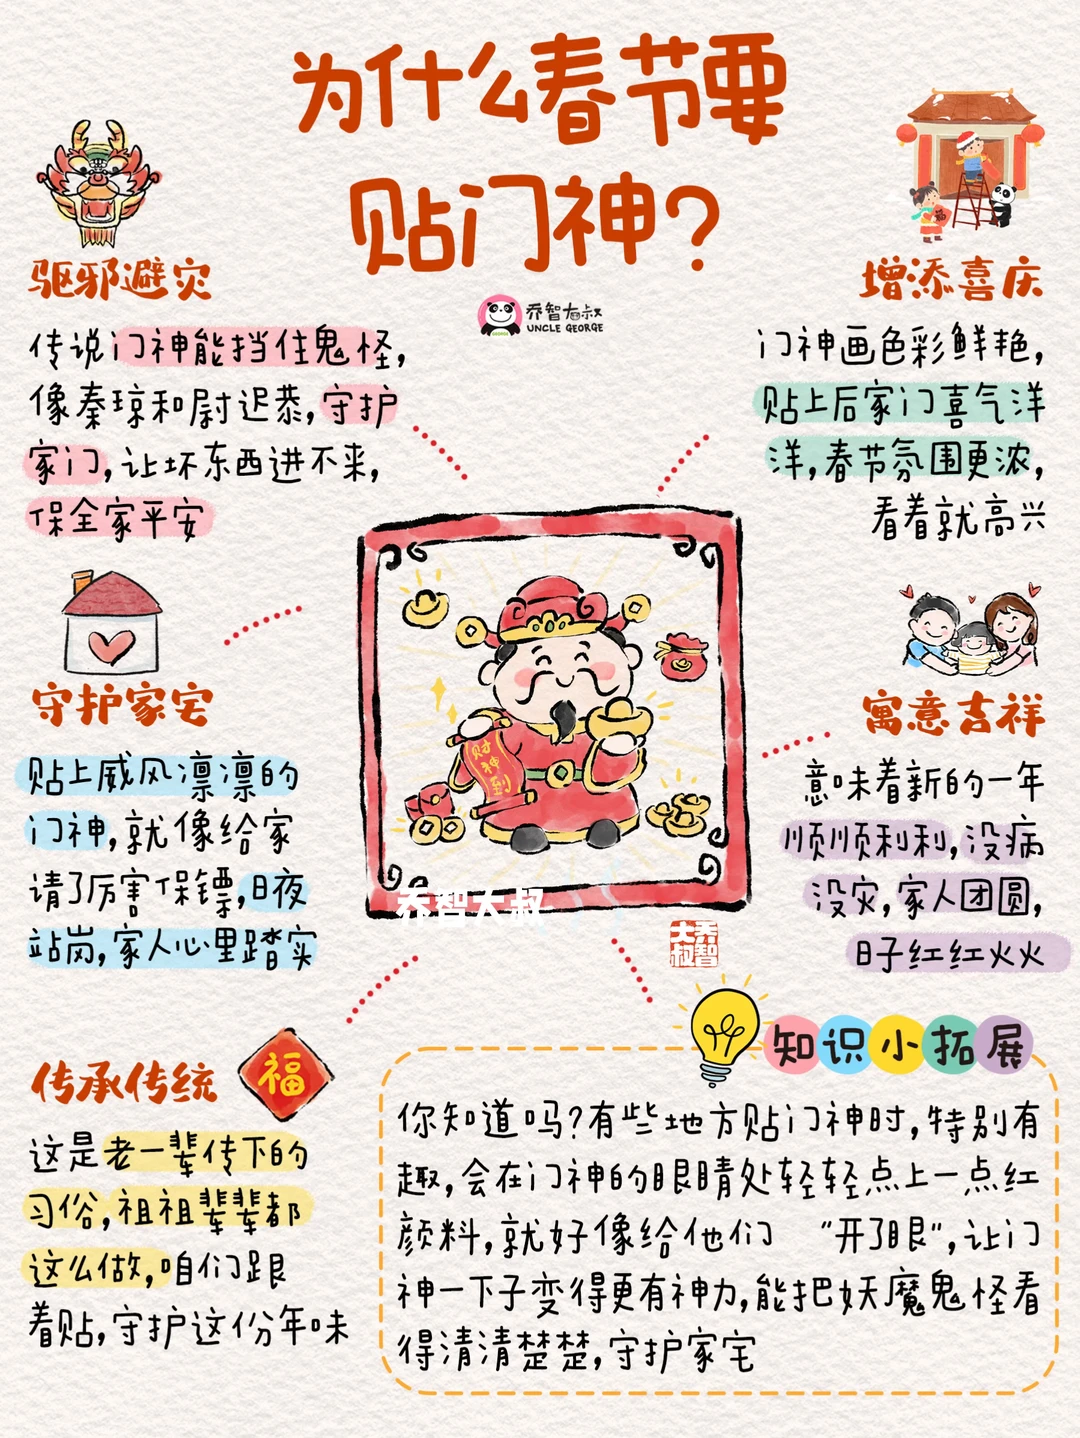 为什么春节要
贴门神？
乔智大叔
UNCLE GEORGE
驱邪避灾
传说门神能挡住鬼怪，
像秦琼和尉迟恭，守护
家门，让坏东西进不来，
保全家平安
增添喜庆
门神画色彩鲜艳，
贴上后家门喜气洋
洋，春节氛围更浓，
看着就高兴
守护家宅
贴上威风凛凛的
门神，就像给家
请了厉害保镖，日夜
站岗，家人心里踏实
寓意吉祥
意味着新的一年
顺顺利利，没病
没灾，家人团圆，
日子红红火火
财神到
乔智大叔
乔智大叔
传承传统
福
这是老一辈传下的
习俗，祖祖辈辈都
这么做，咱们跟
着贴，守护这份年味
知识小拓展
你知道吗？有些地方贴门神时，特别有
趣，会在门神的眼睛处轻轻点上一点红
颜料，就好像给他们 “开了眼”，让门
神一下子变得更有神力，能把妖魔鬼怪看
得清清楚楚，守护家宅